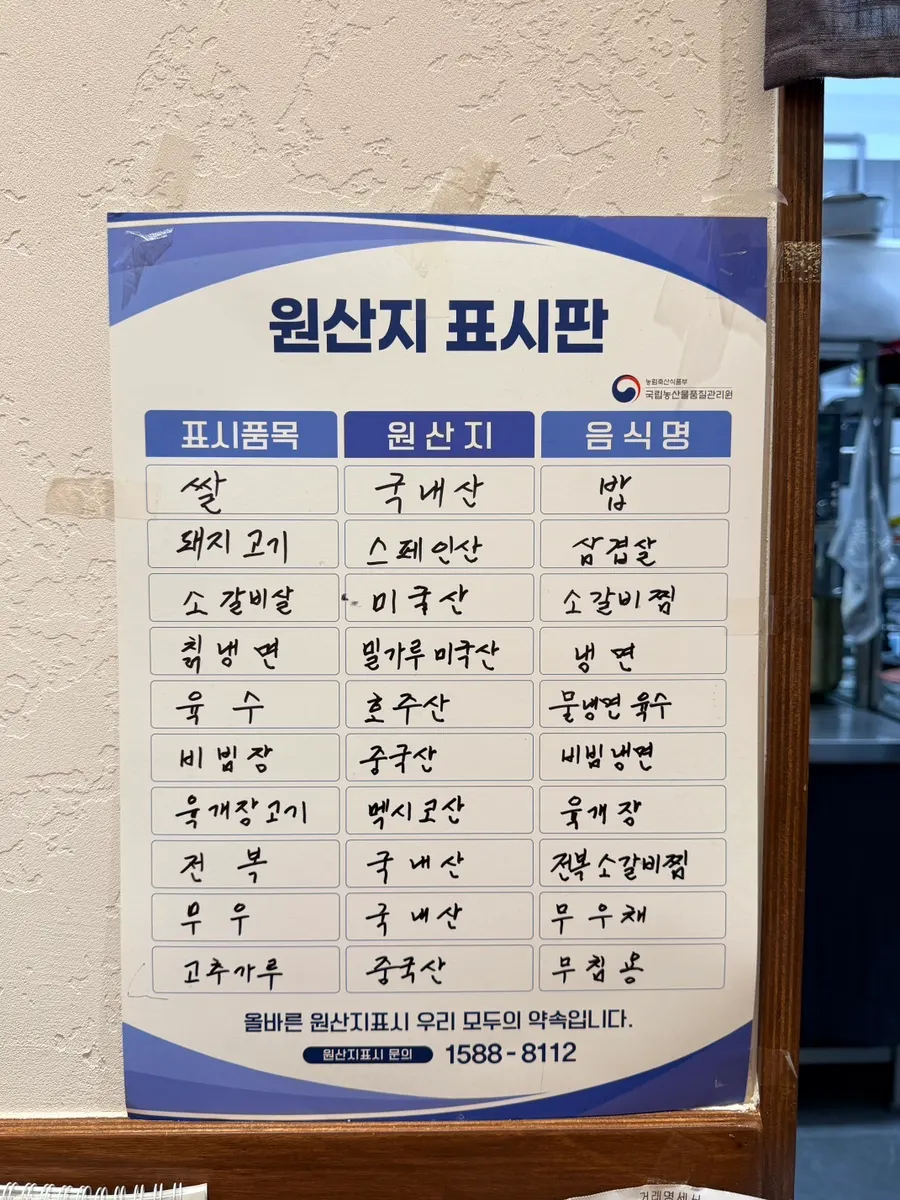 원산지 표시판
농림축산식품부
국립농산물품질관리원
표시품목 원산지 음식명
쌀 국내산 밥
돼지고기 스페인산 삼겹살
소갈비살 미국산 소갈비찜
칡냉면 밀가루 미국산 냉면
육수 호주산 물냉면 육수
비빔장 중국산 비빔냉면
육개장고기 멕시코산 육개장
전복 국내산 전복소갈비찜
무우 국내산 무우채
고추가루 중국산 무침용
올바른 원산지표시 우리 모두의 약속입니다.
원산지표시 문의 1588-8112
거래명세서